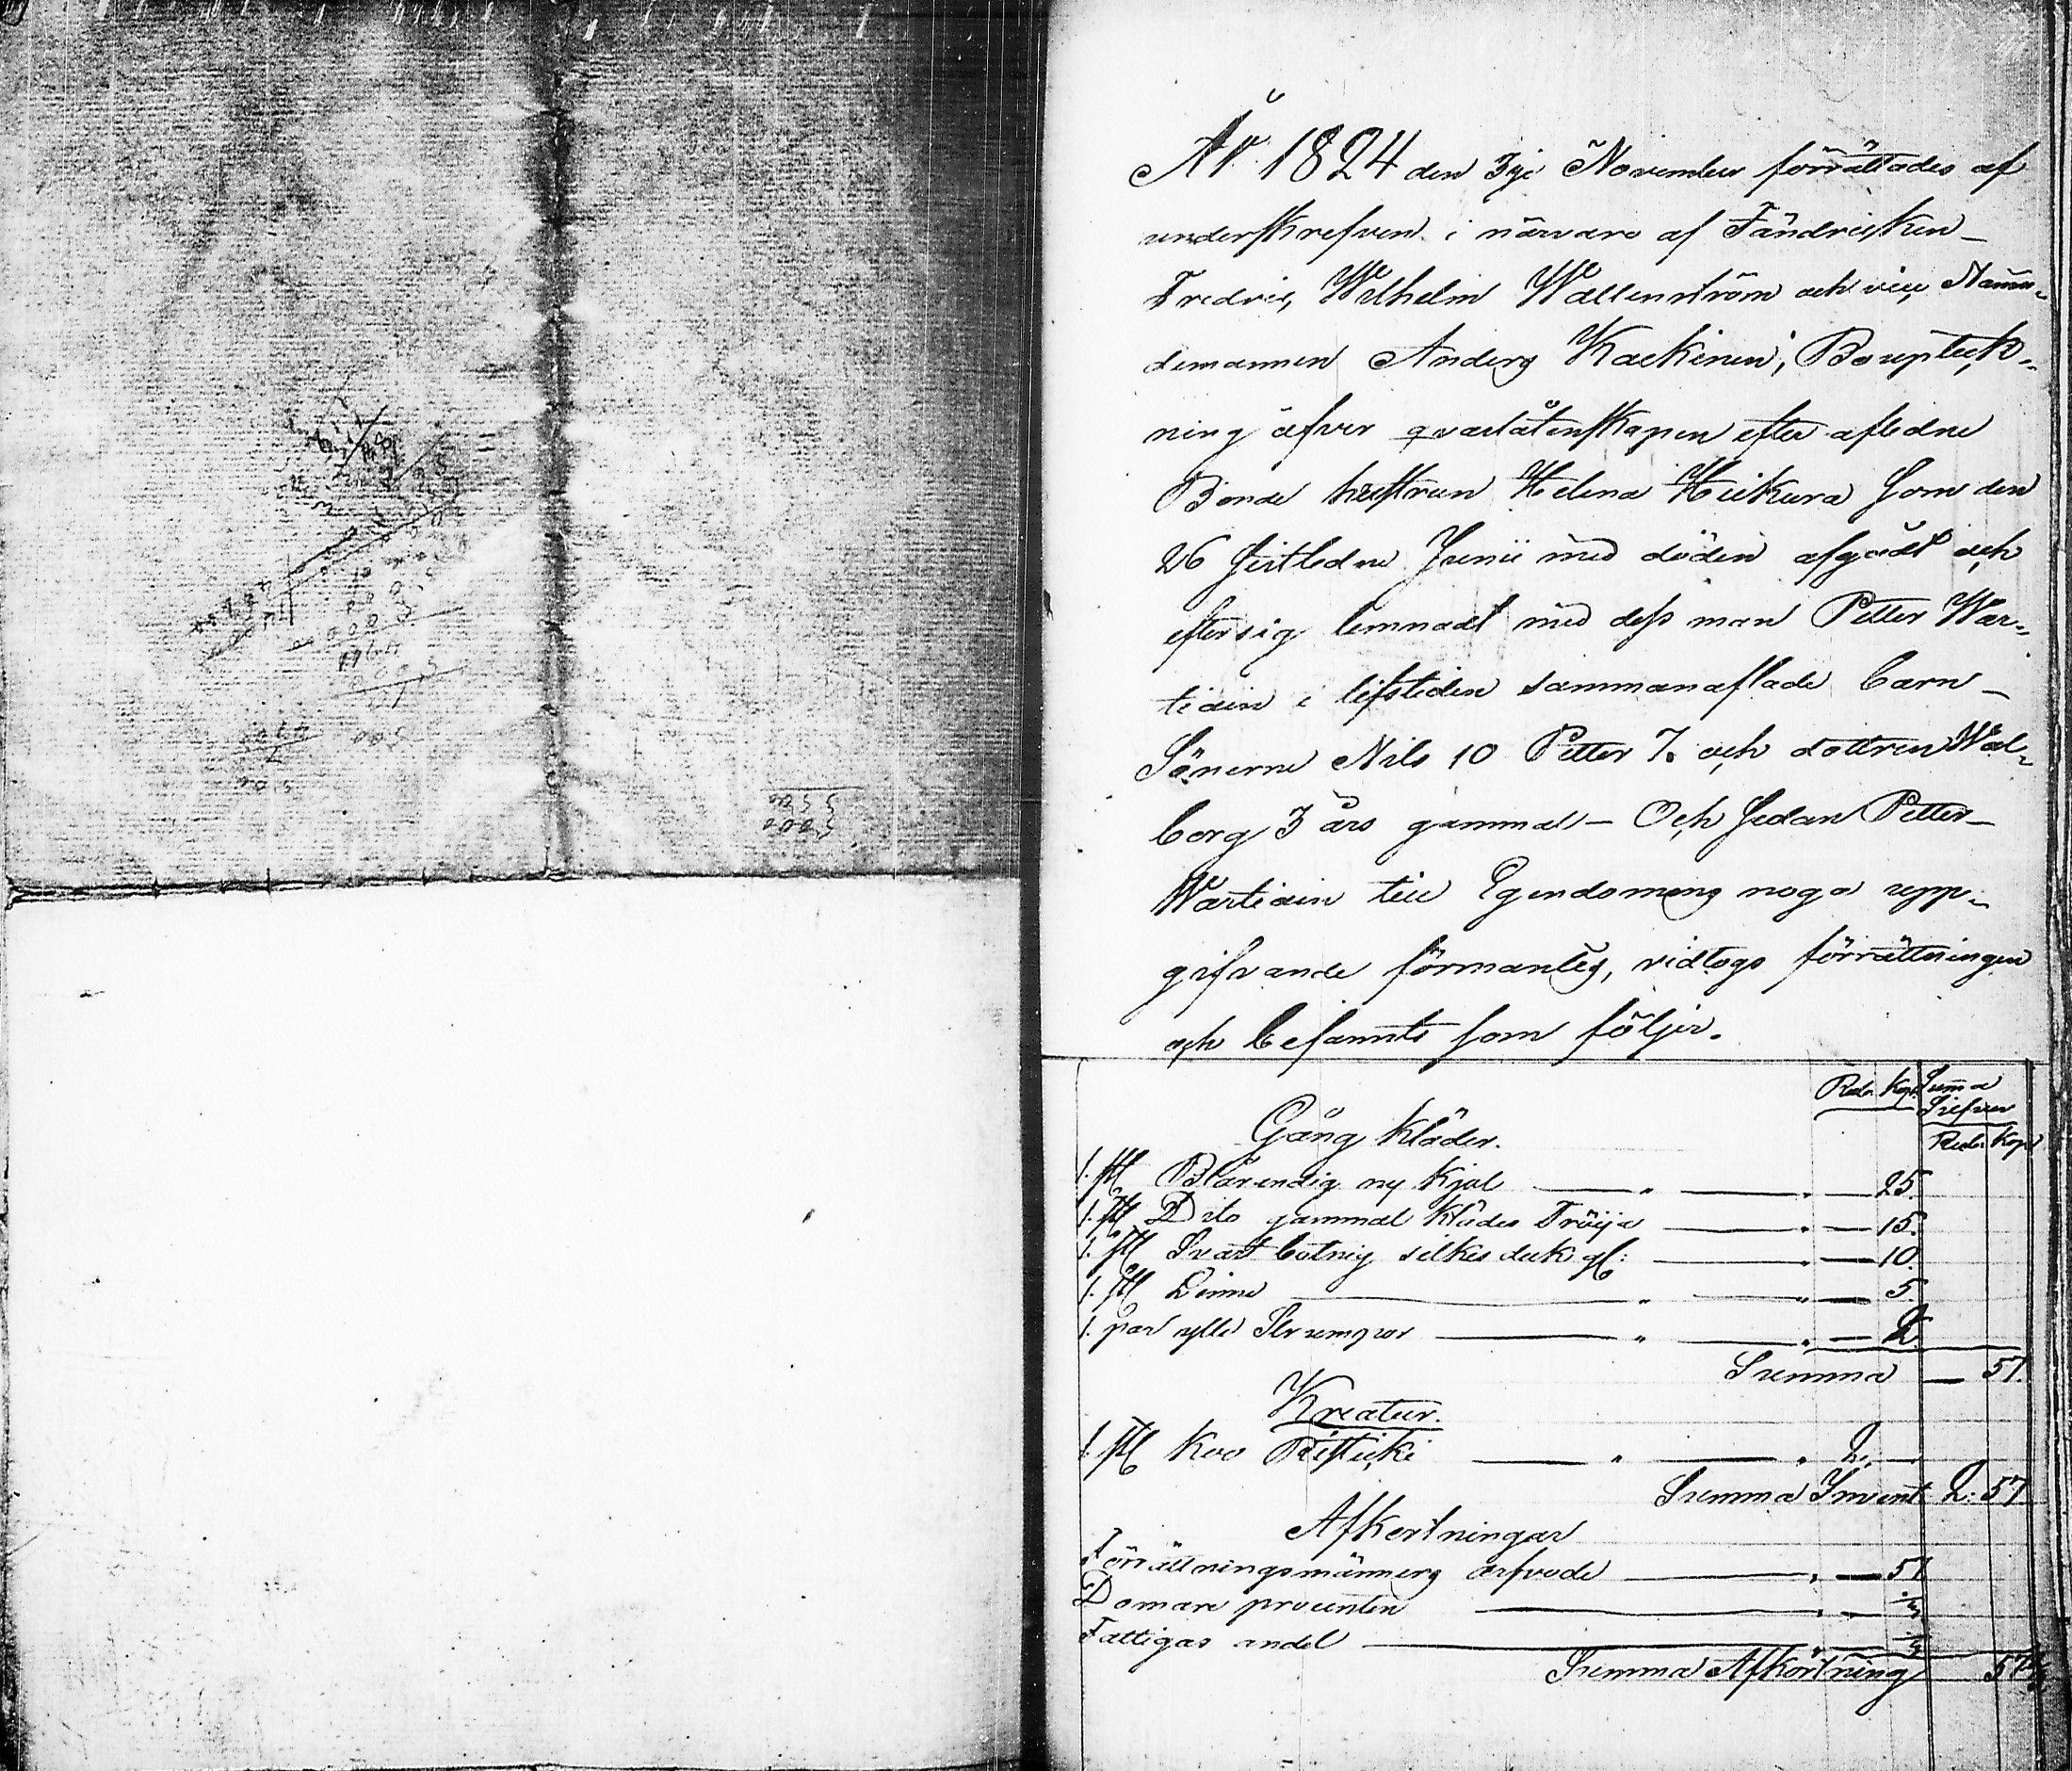 År 1824 den 3je November förrättades af
underskrefven i närvaro af Fändricken
Fredric Wilhelm Wallenström och vice Nämn-
demannen Anders Kaekinen, Boupteck-
ning öfver qvarlåtenskapen efter afledne
Bonde hustrun Helena Heikura som den
26 sistledne Junii med döden afgådt och
efter sig lemnadt med dess man Petter War-
tiain i lifstiden sammanaflade barn
Sönerne Nils 10 Petter 7. och dottren Wal-
borg 3 års gammal - Och sedan Petter
Wartiain till Egendomens noga upp-
gifvande förmantes, vidtogs förrättningen
och befannts som följer.
Rub. Kop. Summa
Silfver
Rub. Kop
Gång kläder.
1. st Blårandig ny kjol 25.
1. st Dito gammal klädes Tröija 15.
1. st Svart botnig silkes duk gl: 10.
1. st Linne 5.
1. par ylle Strumpor 2.
Summa 57.
Kreatur.
1. st Koo Risticki 2.
Summa Invent 2: 57
Afkortningar
Förrättningsmännens arfvode 57
Domare procenten
Fattigas andel
Summa Afkortning